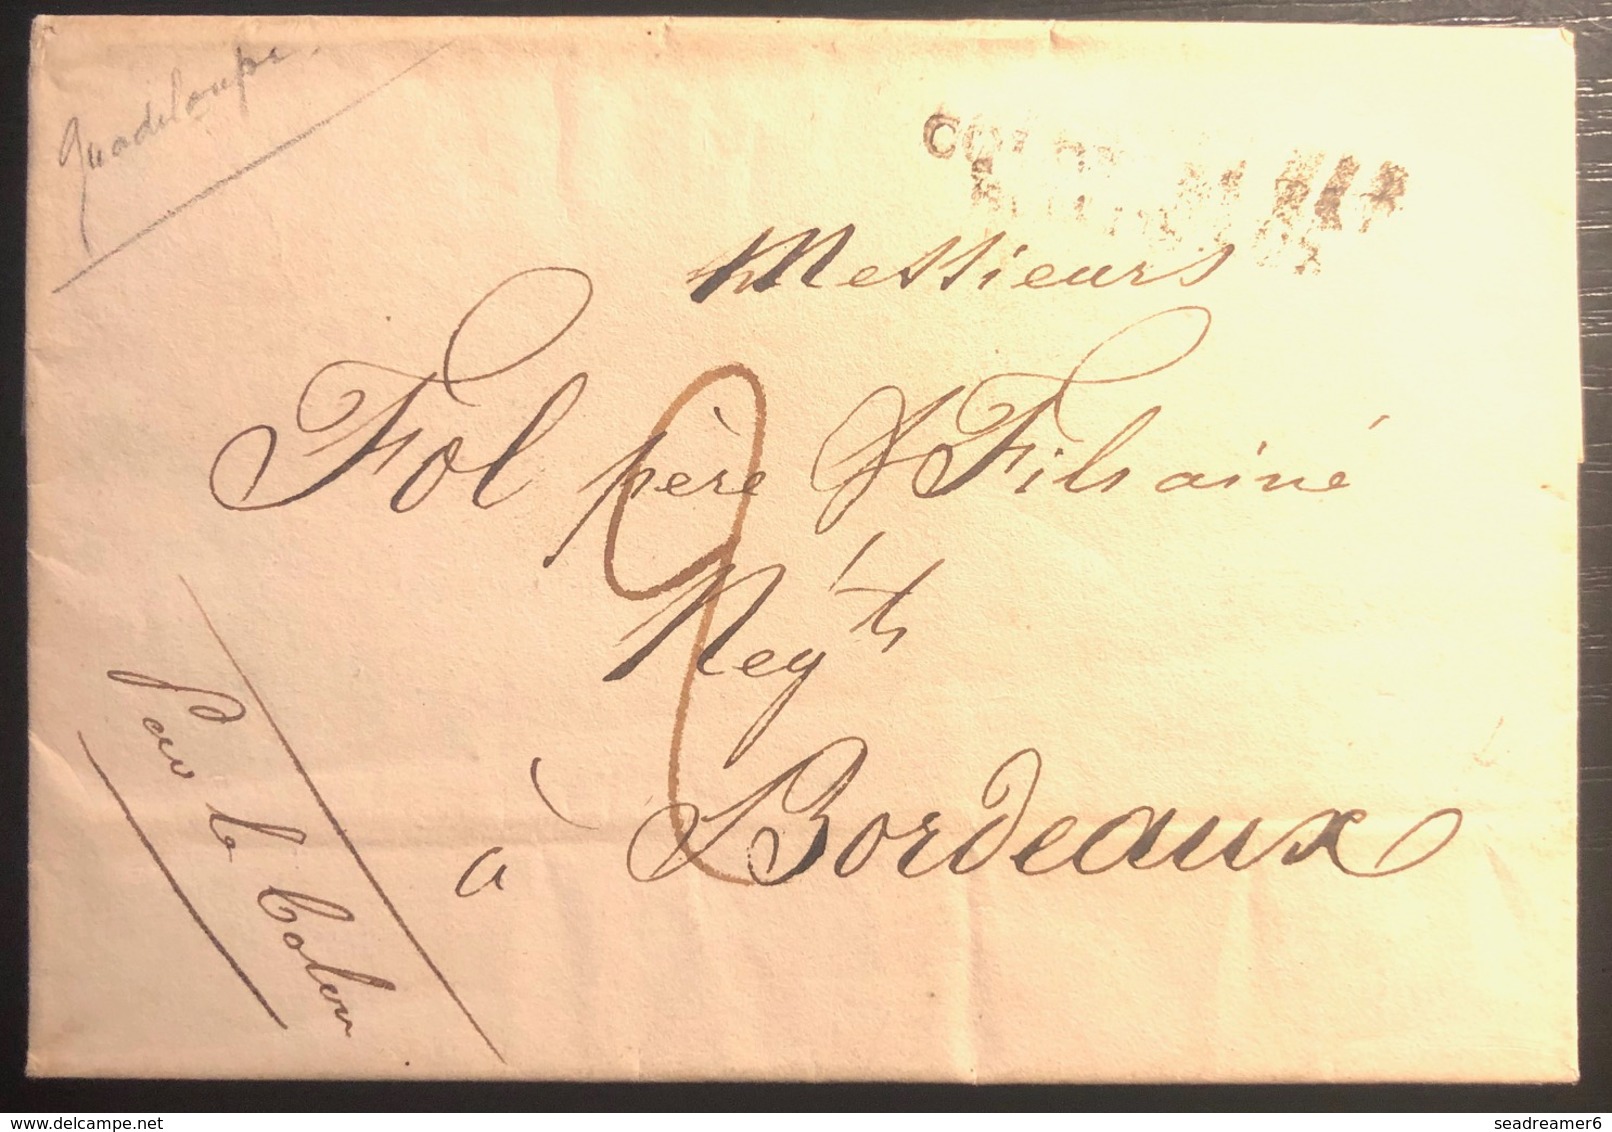 Guadeloupe
COL
Messieurs
Fol père & Fils ainé
Neg.ts
à Bordeaux
Par le Colon
2
delcampe.net
seadreamer6